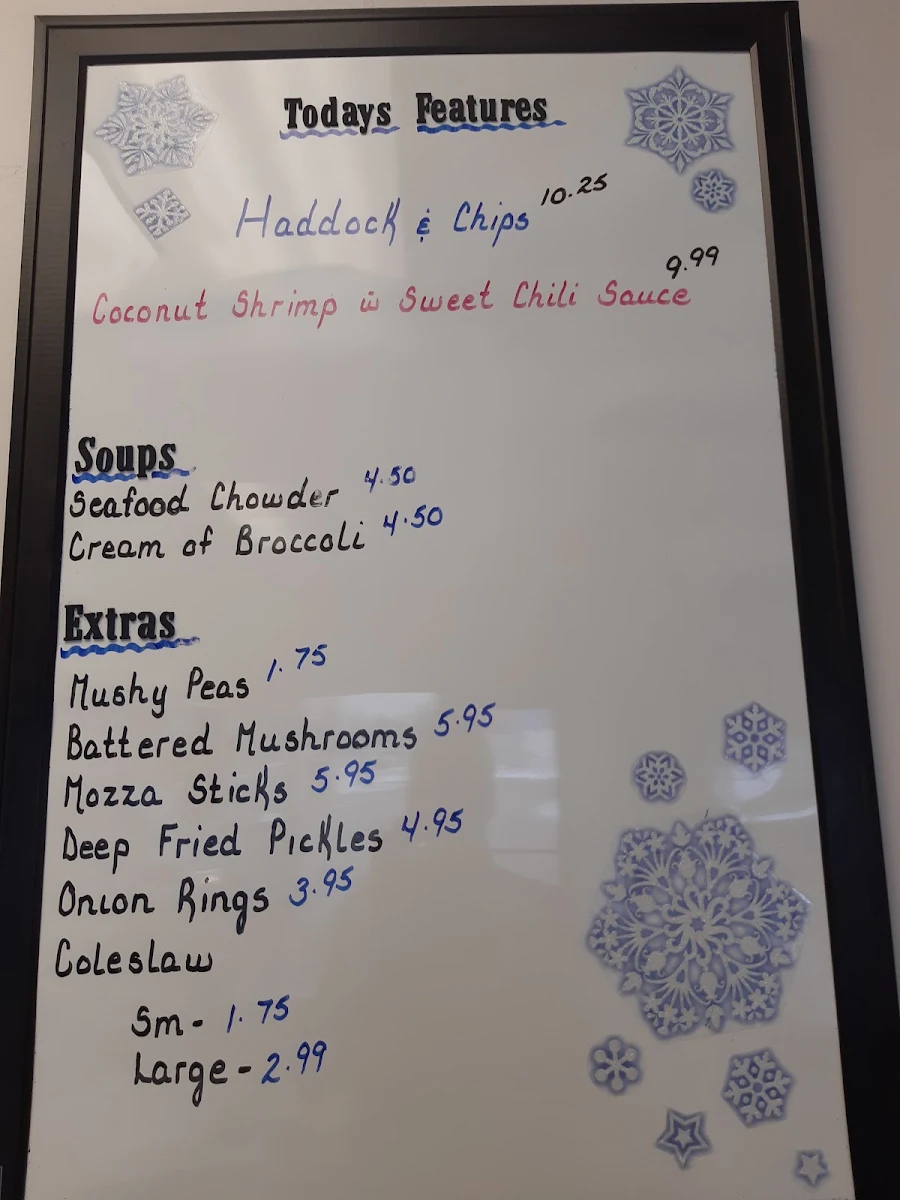 Todays Features
Haddock & Chips 10.25
Coconut Shrimp w Sweet Chili Sauce 9.99
Soups
Seafood Chowder 4.50
Cream of Broccoli 4.50
Extras
Mushy Peas 1.75
Battered Mushrooms 5.95
Mozza Sticks 5.95
Deep Fried Pickles 4.95
Onion Rings 3.95
Coleslaw
Sm - 1.75
Large - 2.99